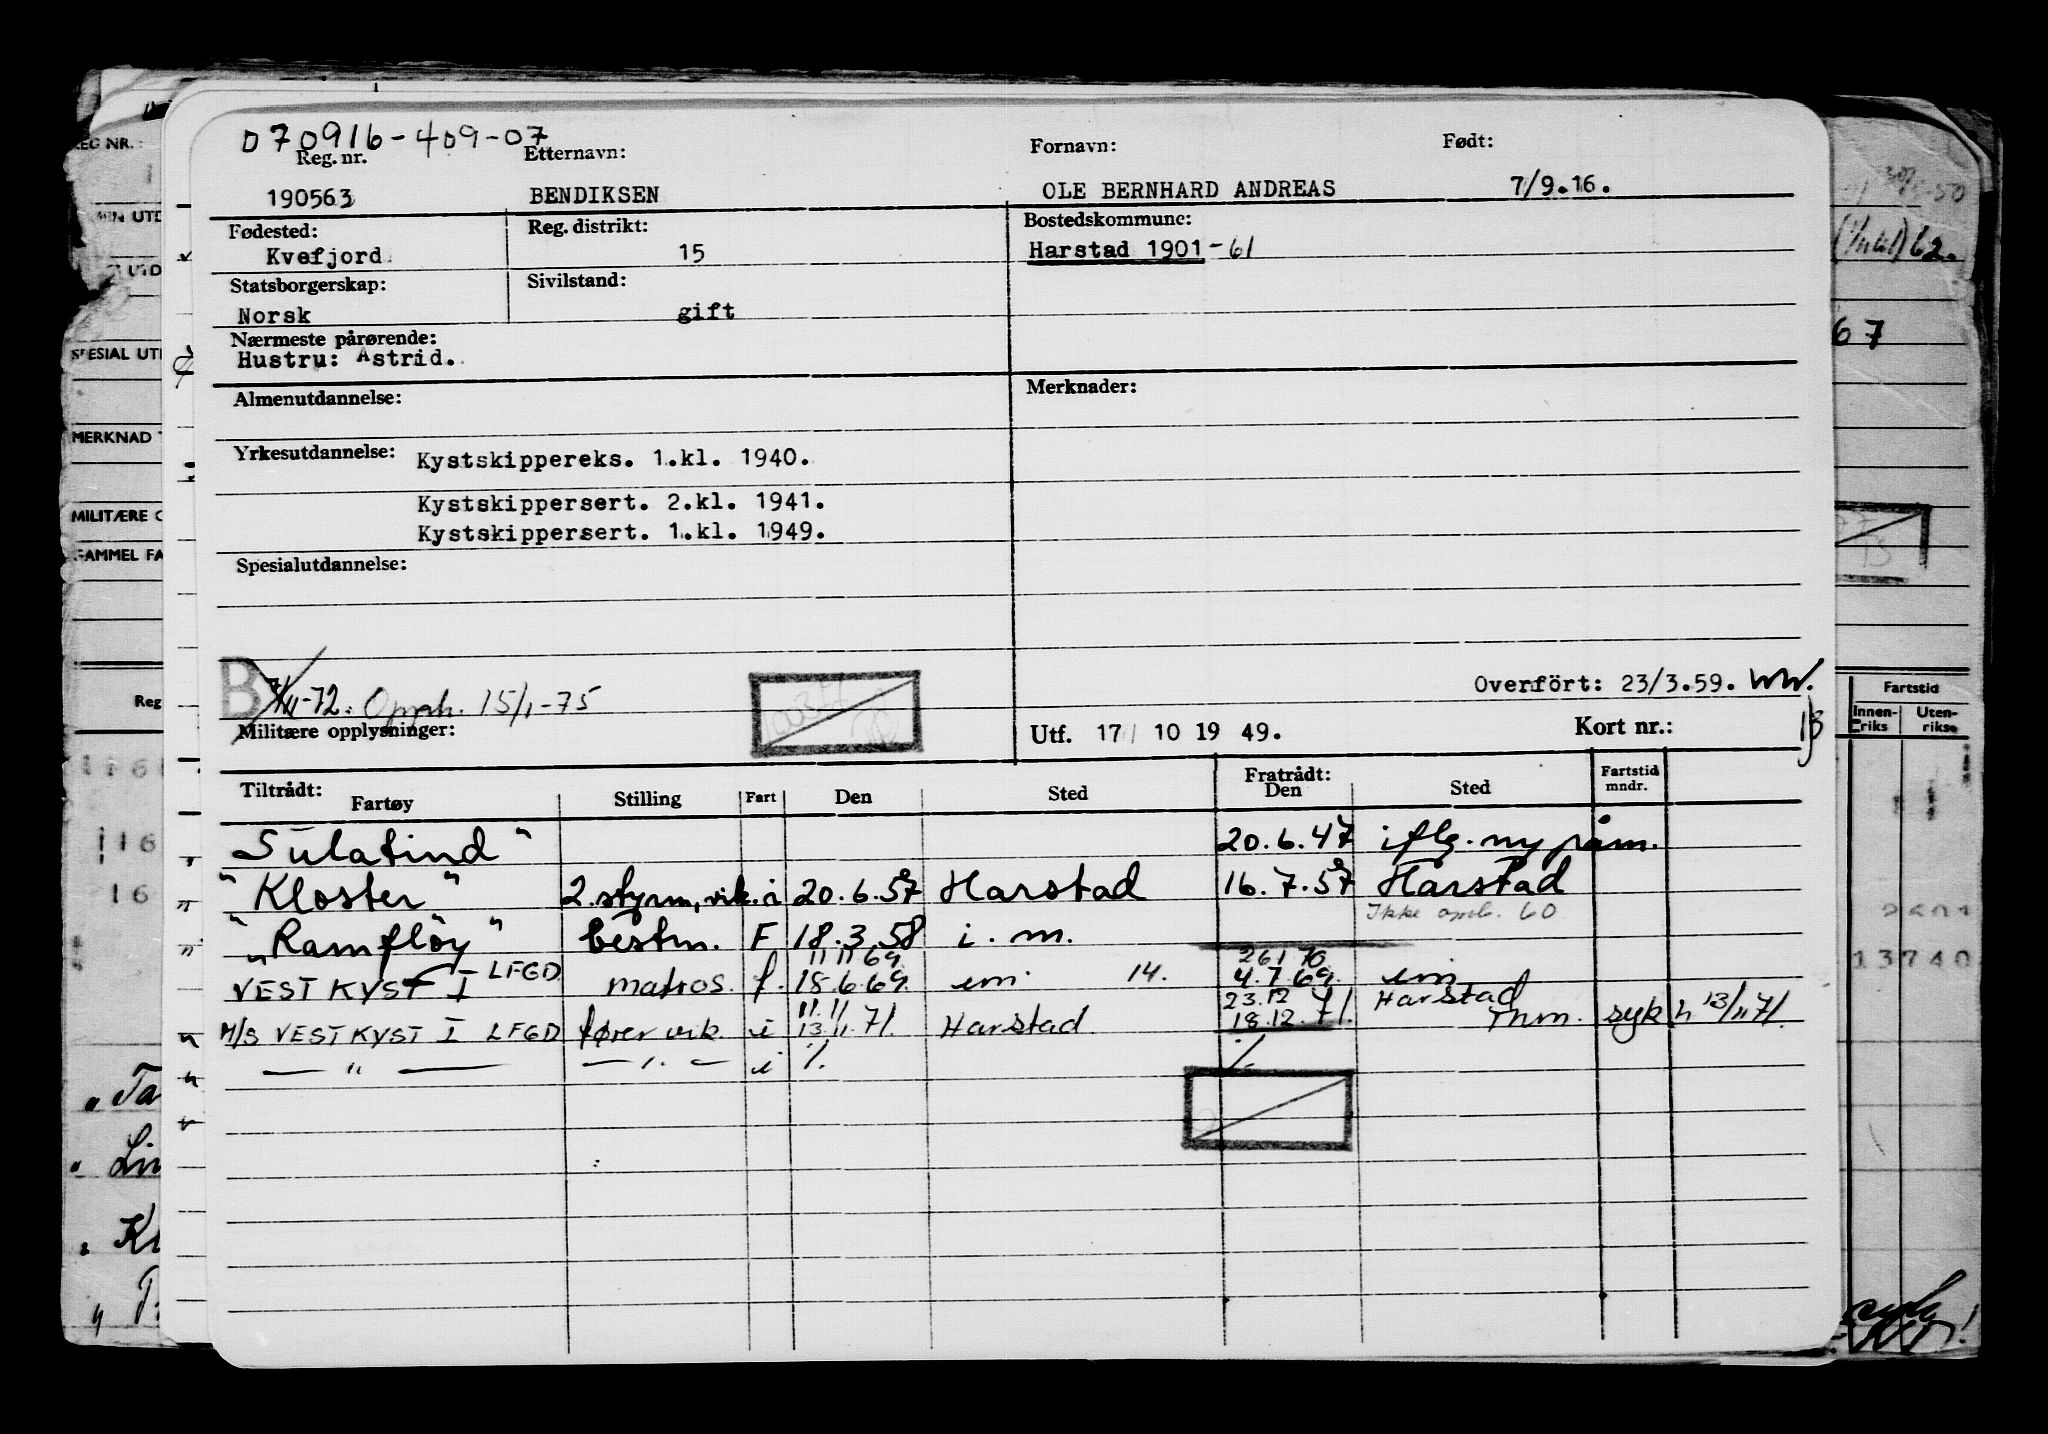 070916-409-07
Reg. nr. Etternavn: Fornavn: Født:
190563 BENDIKSEN OLE BERNHARD ANDREAS 7/9.16.
Fødested: Reg. distrikt: Bostedskommune:
Kvefjord 15 Harstad 1901-61
Statsborgerskap: Sivilstand:
Norsk gift
Nærmeste pårørende:
Hustru: Astrid.
Almenutdannelse: Merknader:
Yrkesutdannelse: Kystskippereks. 1.kl. 1940.
Kystskippersert. 2.kl. 1941.
Kystskippersert. 1.kl. 1949.
Spesialutdannelse:
B -72. Opph. 15/1-75 Overført: 23/3.59.
Militære opplysninger: Utf. 17/ 10 19 49. Kort nr.:
Tiltrådt: Fratrådt: Fartstid
Fartøy Stilling Fart Den Sted Den Sted mndr.
"Sulatind" 20.6.47 iflg. ny påm.
"Kloster" 2.styrm, vik. i 20.6.57 Harstad 16.7.57 Harstad
Ikke omb. 60
"Ramfløy" bestm. F 18.3.58 i. m.
11 11 69 26 1 70
VEST KYST I LFGD matros. f. 18.6.69 em 14. 4.7.69. em
11.11 23.12 Harstad
M/S VESTKYST I LFGD fører vik. i 13.11.71. Harstad 18.12.71. Tmm. syk 13/11 71.
— " — — " — i %. %.
REG NR.:
SPESIAL UT
MERKNAD
MILITÆRE O
GAMMEL FA
Reg
116
116
16
"Ta
" Lin
" Kl
62.
67
Fartstid
Innenriks Utenriks
13740